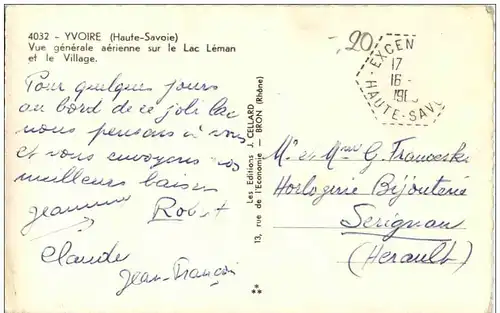 4032 - YVOIRE (Haute-Savoie)
Vue générale aérienne sur le Lac Léman
et le Village.
Pour quelques jours
au bord de ce joli lac
nous pensons à vous
et vous envoyons nos
meilleurs baisers
Jeannine Robert
Claude
Jean-François
Les Editions J. CELLARD
13, rue de l'Economie — BRON (Rhône)
20
EXCEN
17
16 -
HAUTE-SAVO
Mr et Mme G.
Horlogerie Bijouterie
Serignan
(Herault)